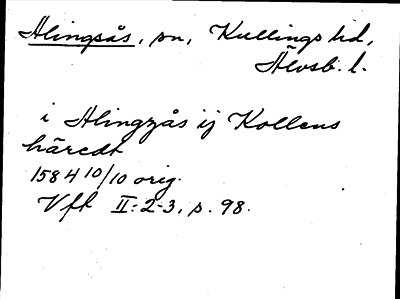 Alingsås, sn, Kullings hd,
Älvsb. l.
i Alingzås ij Kollens
häredt
1584 10/10 orig.
Vfh II: 2-3, s. 98.